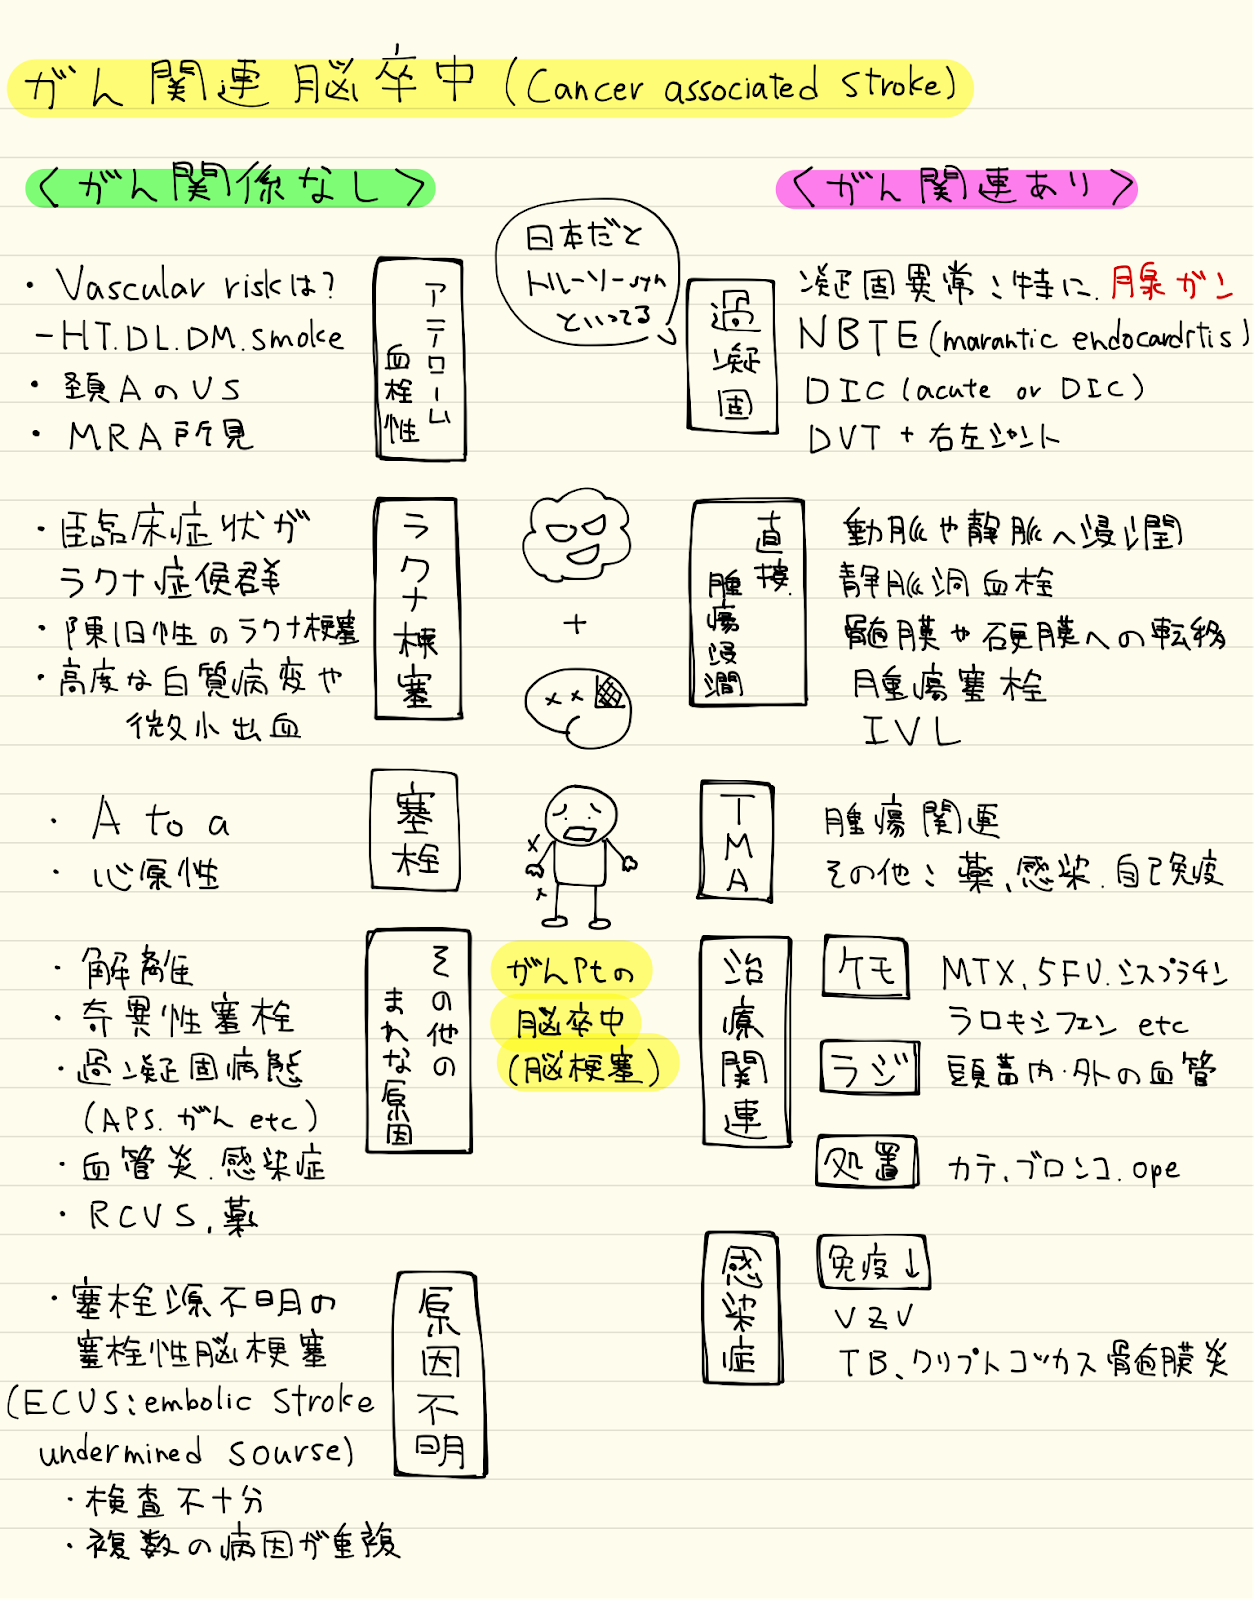 がん関連脳卒中(Cancer associated stroke)
<がん関係なし>
・Vascular riskは?
-HT.DL.DM.smoke
・頚AのUS
・MRA所見
アテローム
血栓性
・臨床症状が
ラクナ症候群
・陳旧性のラクナ梗塞
・高度な白質病変や
微小出血
ラクナ梗塞
・A to a
・心原性
塞栓
・解離
・奇異性塞栓
・過凝固病態
(APS.がん etc)
・血管炎.感染症
・RCVS.薬
その他の
まれな原因
・塞栓源不明の
塞栓性脳梗塞
(ECUS:embolic stroke
undermined sourse)
・検査不十分
・複数の病因が重複
原因不明
日本だと
トルーソーsyn
といってる
+
がんPtの
脳卒中
(脳梗塞)
<がん関連あり>
過凝固
凝固異常:特に.腺ガン
NBTE(marantic endocardrtis)
DIC(acute or DIC)
DVT+右左シャント
直接
腫瘍浸潤
動脈や静脈へ浸潤
静脈洞血栓
髄膜や硬膜への転移
腫瘍塞栓
IVL
TMA
腫瘍関連
その他:薬、感染.自己免疫
治療関連
ケモ
MTX.5FU.シスプラチン
ラロキシフェン etc
ラジ
頭蓋内・外の血管
処置
カテ.ブロンコ.ope
感染症
免疫↓
VZV
TB、クリプトコッカス髄膜炎